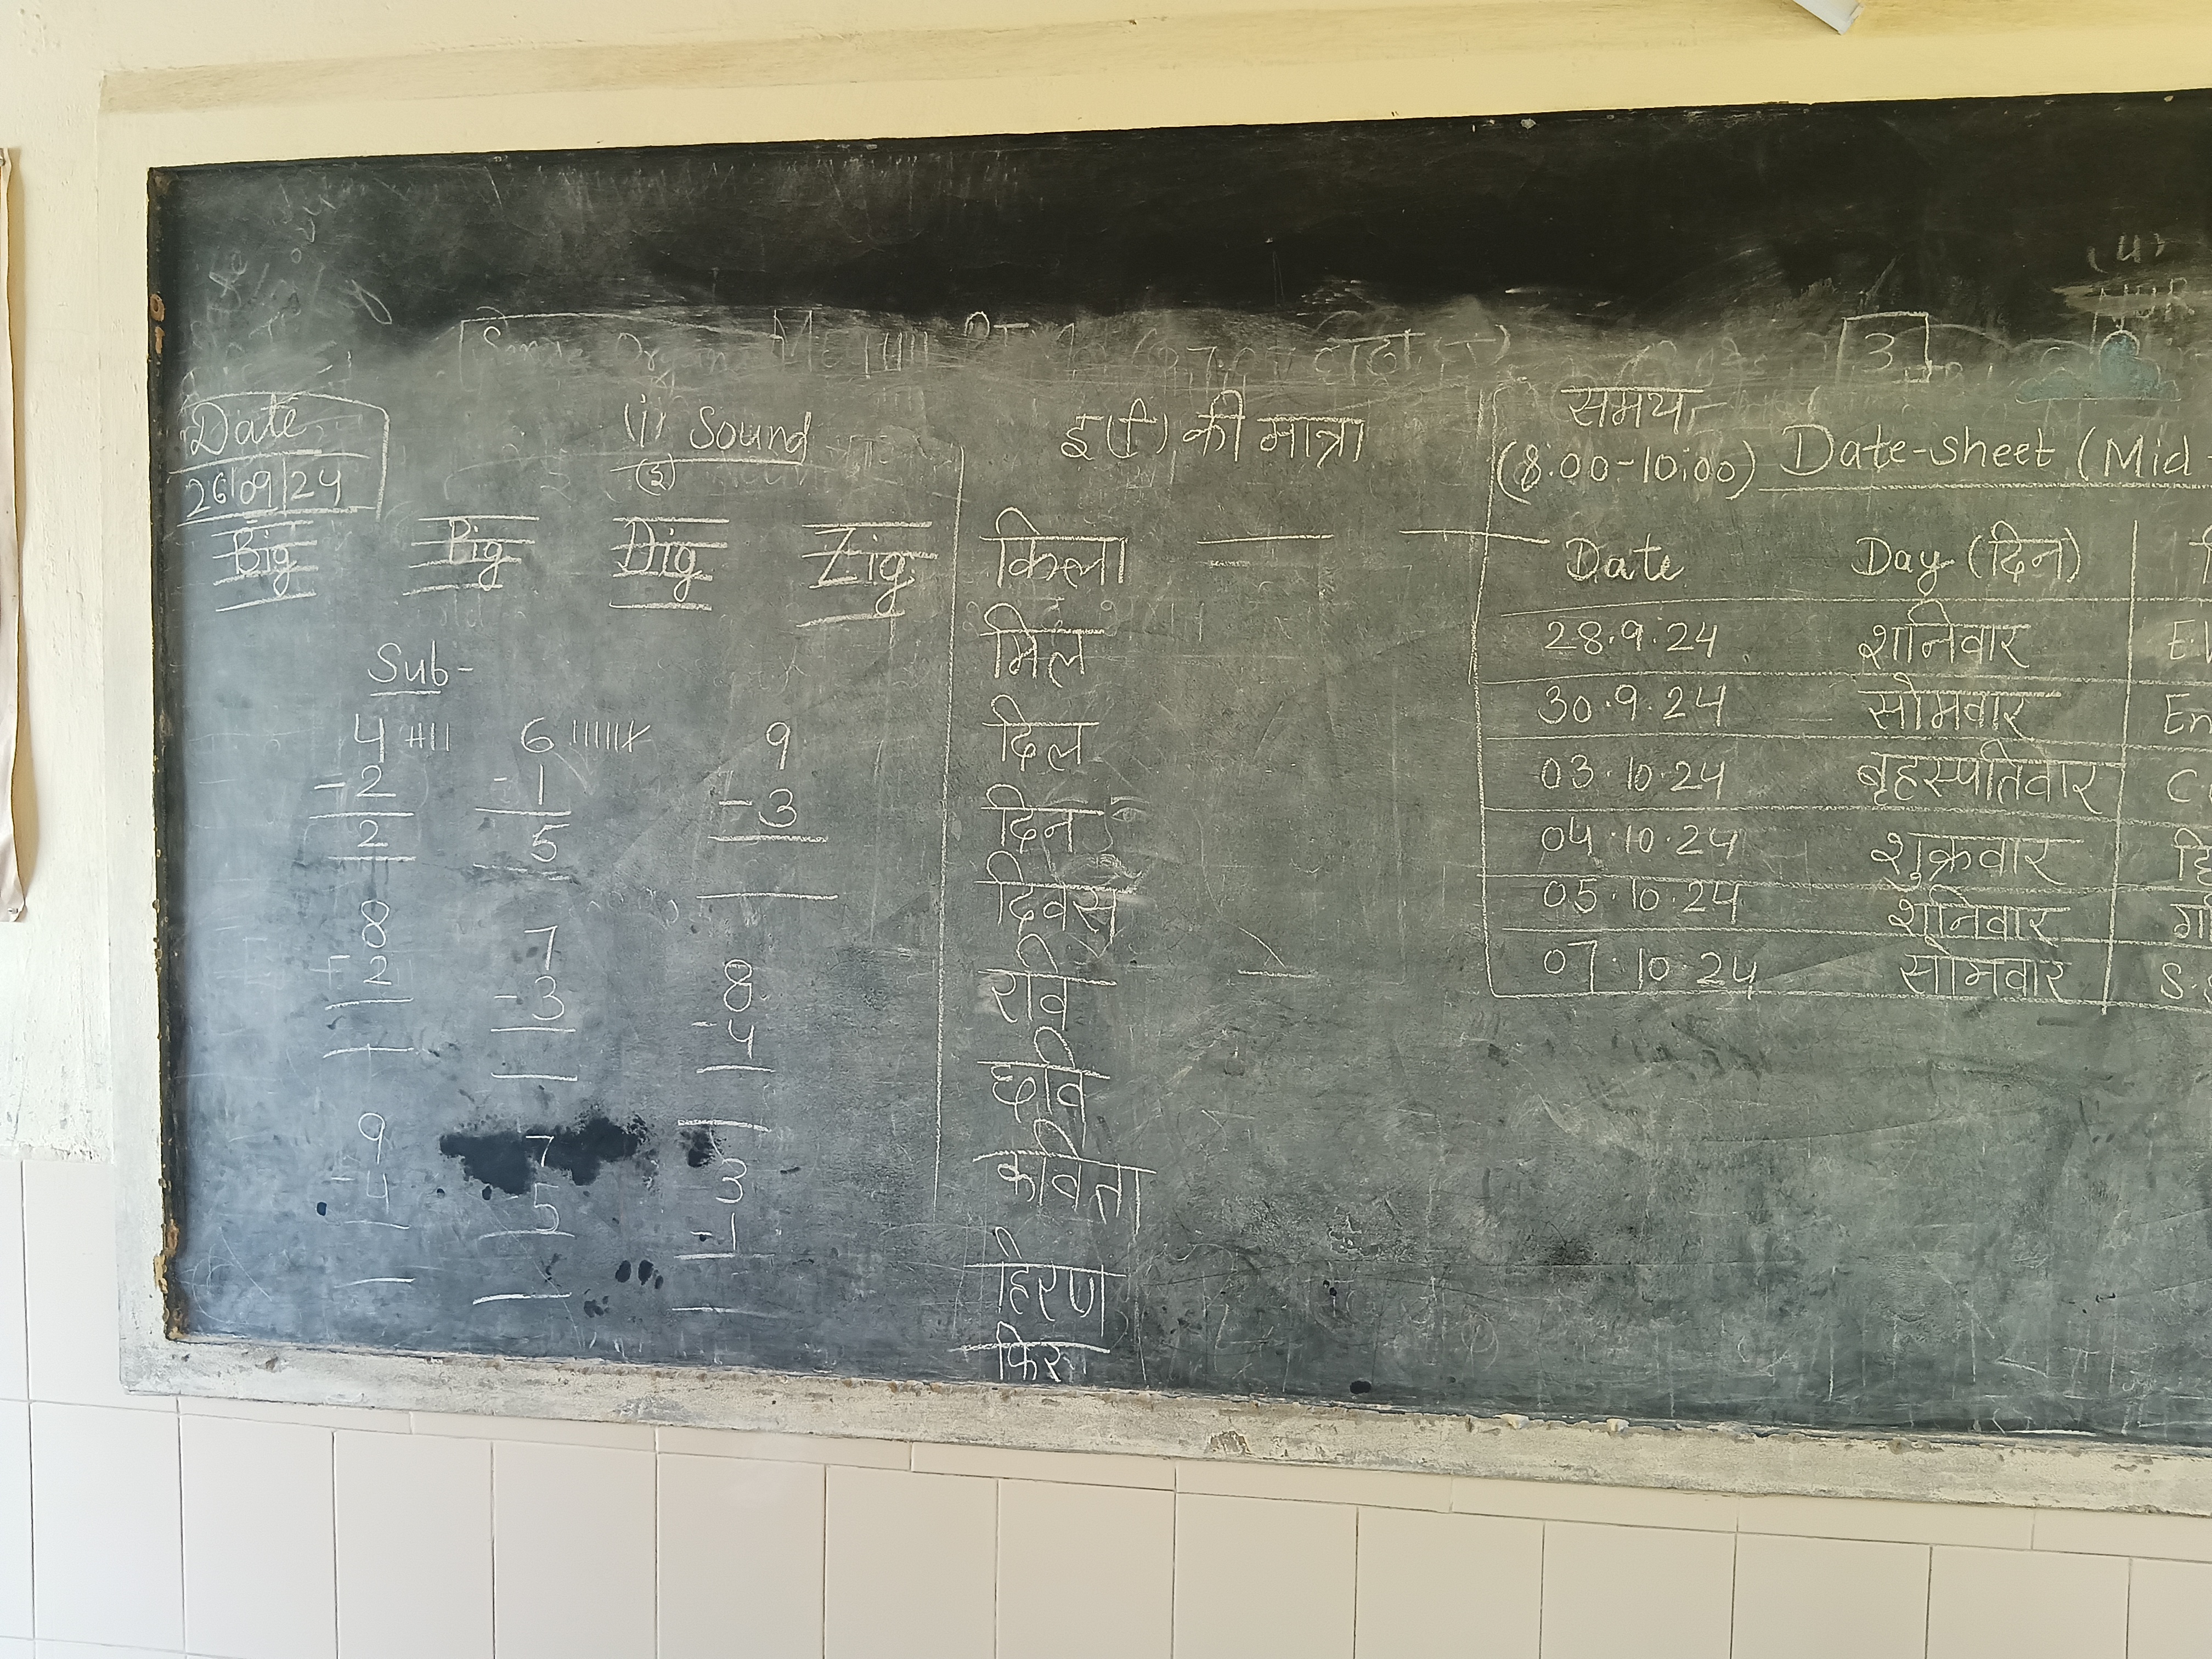 3
Date
26/09/24
(i) Sound
(इ)
Big Pig Dig Zig
Sub-
4 6 9
- 2 - 1 - 3
2 5
8 7 8
- 2 - 3 - 4
9 7 3
- 4 5 - 1
इ(ि) की मात्रा
किला
मिल
दिल
दिन
दिवस
रवि
छवि
कविता
हिरण
फिर
समय
(8:00-10:00) Date-sheet (Mid-
Date Day (दिन)
28.9.24 शनिवार
30.9.24 सोमवार En
03.10.24 बृहस्पतिवार
04.10.24 शुक्रवार
05.10.24 शनिवार
07.10.24 सोमवार